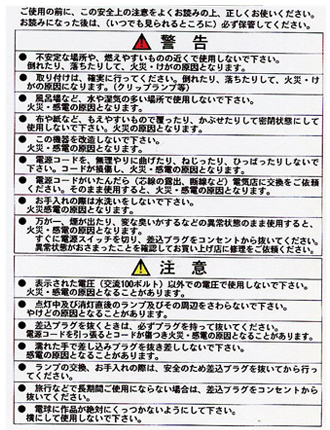 ご使用の前に、この安全上の注意をよくお読みの上、正しくお使いください。
お読みになった後は、（いつでも見られるところに）必ず保管してください。
警告
● 不安定な場所や、燃えやすいものの近くで使用しないで下さい。
倒れたり、落ちたりして、火災・けがの原因となります。
● 取り付けは、確実に行ってください。倒れたり、落ちたりして、火災・け
がの原因になります。（クリップランプ等）
● 風呂場など、水や湿気の多い場所で使用しないで下さい。
火災・感電の原因となります。
● 布や紙など、もえやすいもので覆ったり、かぶせたりして密閉状態にして
使用しないで下さい。火災の原因となります。
● この機器を改造しないで下さい。
火災・感電の原因となります。
● 電源コードを、無理やりに曲げたり、ねじったり、ひっぱったりしないで
下さい。コードが損傷し、火災・感電の原因となります。
● 電源コードがいたんだら（芯線の露出、断線など）電気店に交換をご依頼
ください。そのまま使用すると、火災・感電の原因となります。
● お手入れの際は水洗いをしないで下さい。
火災感電の原因となります。
● 万が一、煙が出たり、変な臭いがするなどの異常状態のまま使用すると、
火災・感電の原因となります。
すぐに電源スイッチを切り、差込プラグをコンセントから抜いてください。
異常状態がおさまったことを確認してお買い上げ店に修理をご依頼ください。
注意
● 表示された電圧（交流100ボルト）以外での電圧で使用しないで下さい。
火災・感電の原因となることがあります。
● 点灯中及び消灯直後のランプ及びその周辺をさわらないで下さい。
やけどの原因となることがあります。
● 差込プラグを抜くときは、必ずプラグを持って抜いてください。
電源コードを引っ張るとコードが傷つき火災・感電の原因となることがあります。
● 濡れた手で差し込みプラグを抜き差ししないで下さい。
感電の原因となることがあります。
● ランプの交換、お手入れの際は、安全のため差込プラグを抜いてから行っ
てください。
● 旅行などで長期間ご使用にならない場合は、差込プラグをコンセントから
抜いてください。
● 電球に作品が絶対にくっつかないようにして下さい。
横にして使用しないで下さい。